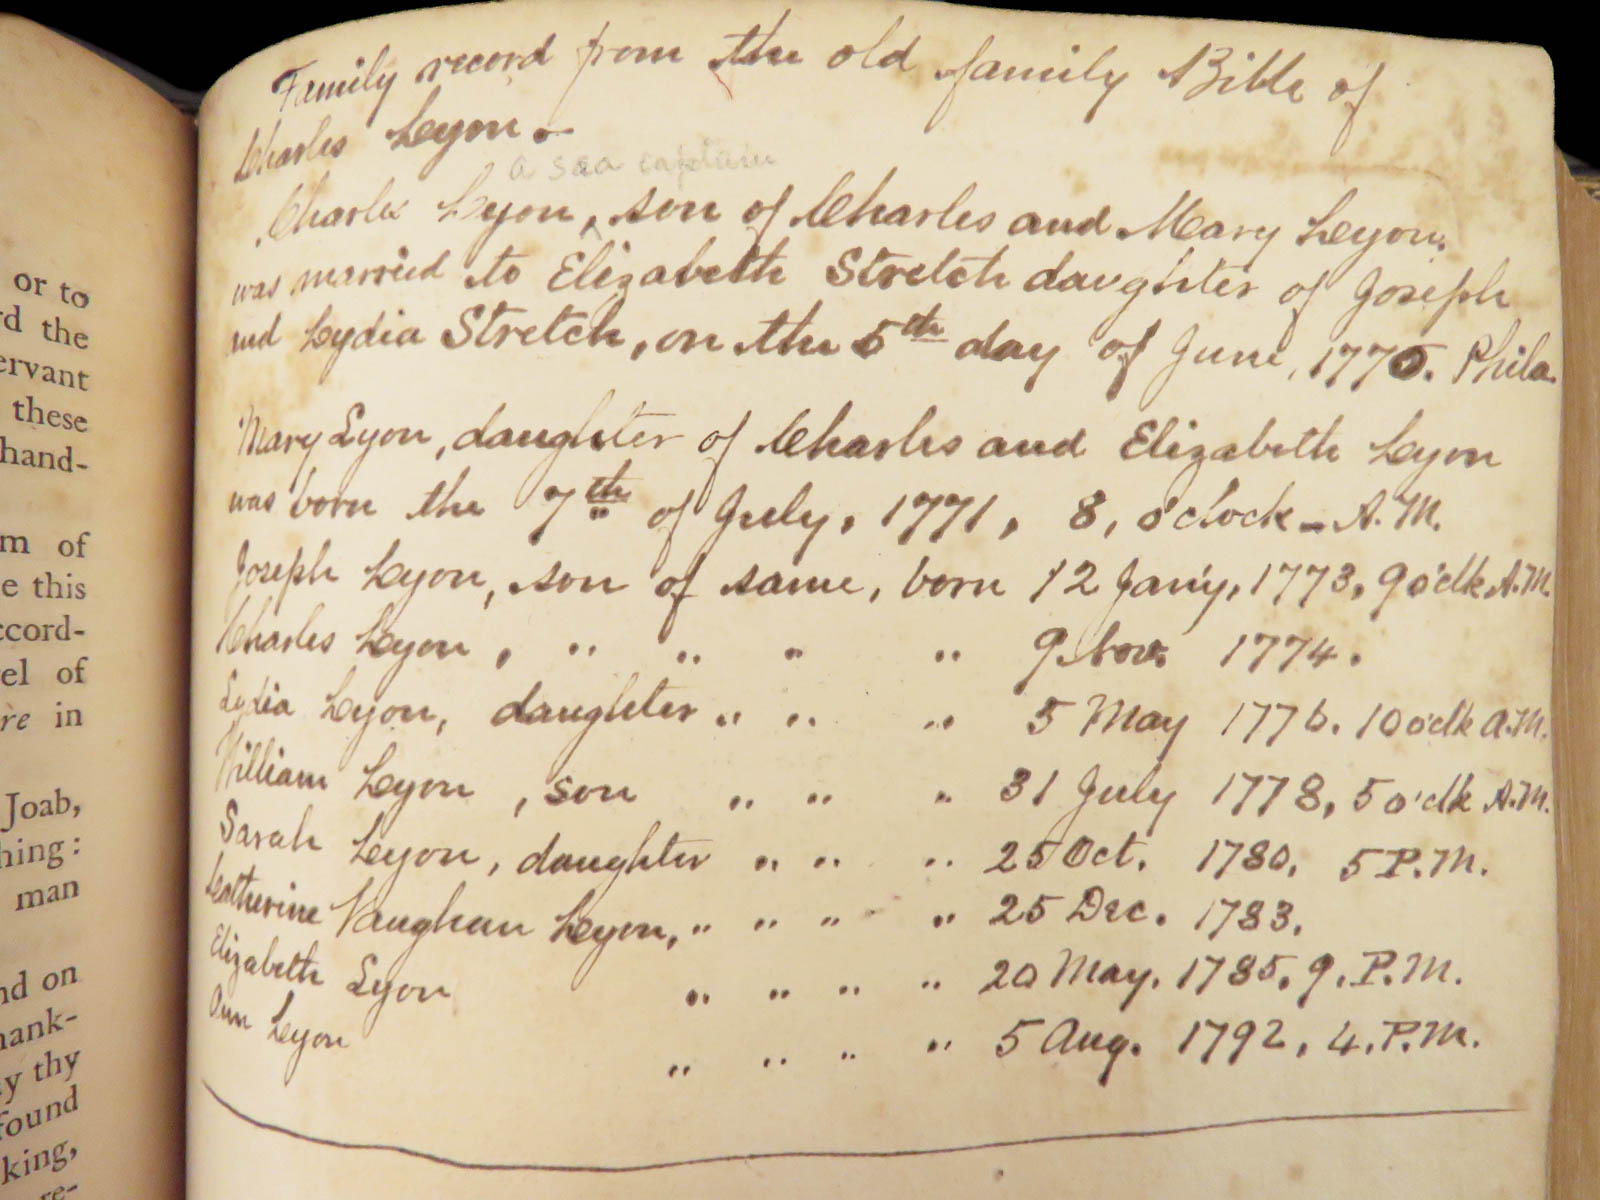 or to
rd the
ervant
these
hand-
m of
e this
ccord-
el of
re in
Joab,
hing:
man
nd on
hank-
y thy
found
king,
re-
Family record from the old family Bible of
Charles Lyon.
a sea captain
Charles Lyon, son of Charles and Mary Lyon,
was married to Elizabeth Stretch daughter of Joseph
and Lydia Stretch, on the 5th day of June, 1770. Phila.
Mary Lyon, daughter of Charles and Elizabeth Lyon
was born the 7th of July, 1771, 8, o'clock - A.M.
Joseph Lyon, son of same, born 12 Jan'y, 1773, 9 o'clk A.M.
Charles Lyon, " " " " 9. Nov. 1774.
Lydia Lyon, daughter " " " 5 May 1776. 10 o'clk A.M.
William Lyon, son " " " 31 July 1778, 5 o'clk A.M.
Sarah Lyon, daughter " " " 25 Oct. 1780, 5 P.M.
Catherine Vaughan Lyon, " " " " 25 Dec. 1783.
Elizabeth Lyon " " " " 20 May. 1785. 9. P.M.
Ann Lyon " " " " 5 Aug. 1792, 4. P.M.